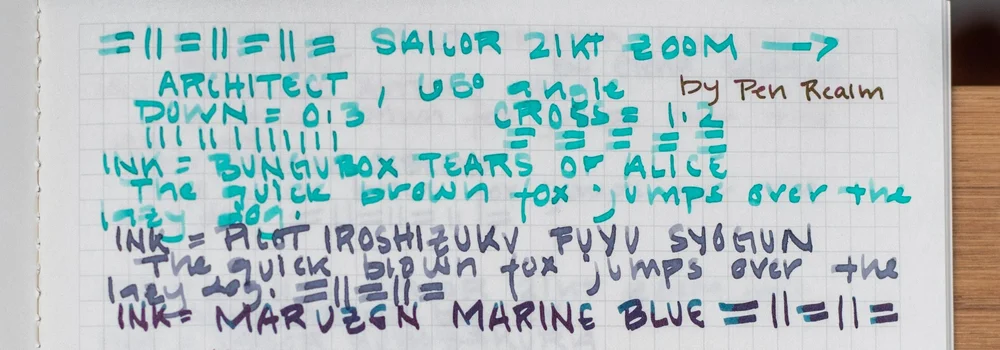 =||=||=||= SAILOR 21KT ZOOM →
ARCHITECT, 45° angle by Pen Realm
DOWN = 0.3 CROSS = 1.2
INK = BUNGUBOX TEARS OF ALICE
The quick brown fox jumps over the
lazy dog.
INK = PILOT IROSHIZUKU FUYU SYOGUN
The quick brown fox jumps over the
lazy dog. =||=||=
INK = MARUZEN MARINE BLUE =||=||=